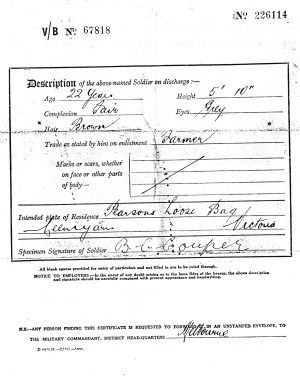 V/B No 67818
No 226114
Description of the above-named Soldier on discharge:-
Age 22 Years Height 5' 10"
Complexion Fair Eyes Grey
Hair Brown
Trade as stated by him on enlistment Farmer
Marks or scars, whether
on face or other parts
of body—
Intended place of Residence Pearsons Loose Bag
Victoria
Specimen Signature of Soldier B C Couper
All blank spaces provided for entry of particulars and not filled in are to be ruled through.
NOTICE TO EMPLOYERS:—In the event of any doubt arising as to the bona fides of the bearer, the above description
and signature should be carefully compared with present appearance and handwriting.
N.B.—ANY PERSON FINDING THIS CERTIFICATE IS REQUESTED TO FORWARD IT IN AN UNSTAMPED ENVELOPE, TO
THE MILITARY COMMANDANT, DISTRICT HEAD-QUARTERS Melbourne